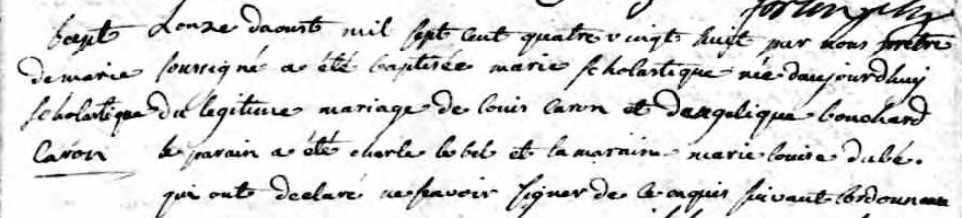 bapt Lonze daoust mil sept cent quatre vingt huit par nous pretre
de marie soussigné a été baptisée marie scholastique née daujourdhuy
scholastique du legitime mariage de louis caron et dangelique bouchard
Caron le parain a été charle lebel et la maraine marie louise dubé.
qui ont declaré ne savoir signer de ce enquis suivant lordonnan